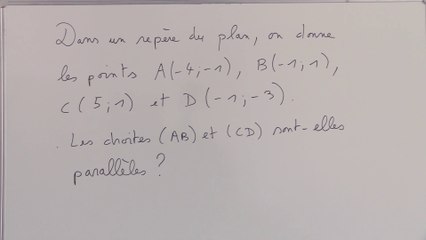 Dans un repère du plan, on donne
les points A(-4;-1), B(-1;1),
C(5;1) et D(-1;-3).
. Les droites (AB) et (CD) sont-elles
parallèles ?